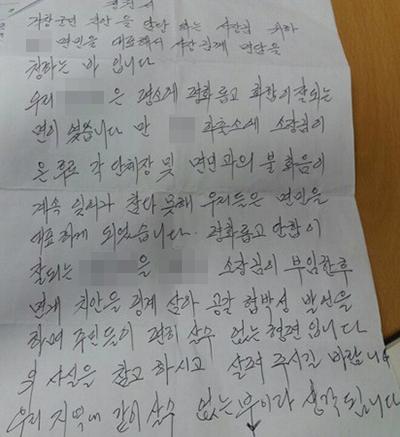 거창군민 치안을 담당 하는 서장님 귀하
면민을 대표해서 서장님께 면담을
청하는 바 입니다
우리 은 평소에 평화롭고 화합이 잘되는
면이 였습니다 만 파출소에 소장님이
온 후로 각 단체장 및 면민과의 불화음이
계속 일어나 참다 못해 우리들은 면민을
대표 하게 되었습니다. 평화롭고 단합이
잘되는 을 소장님이 부임한후
면내 치안을 핑계 삼아 공갈 협박성 발언을
하며 주민들이 편히 살수 없는 형편 입니다
위 사실을 참고 하시고 살펴 주시길 바랍니다
우리 지역에 같이 살수 없는 분이라 생각됩니다